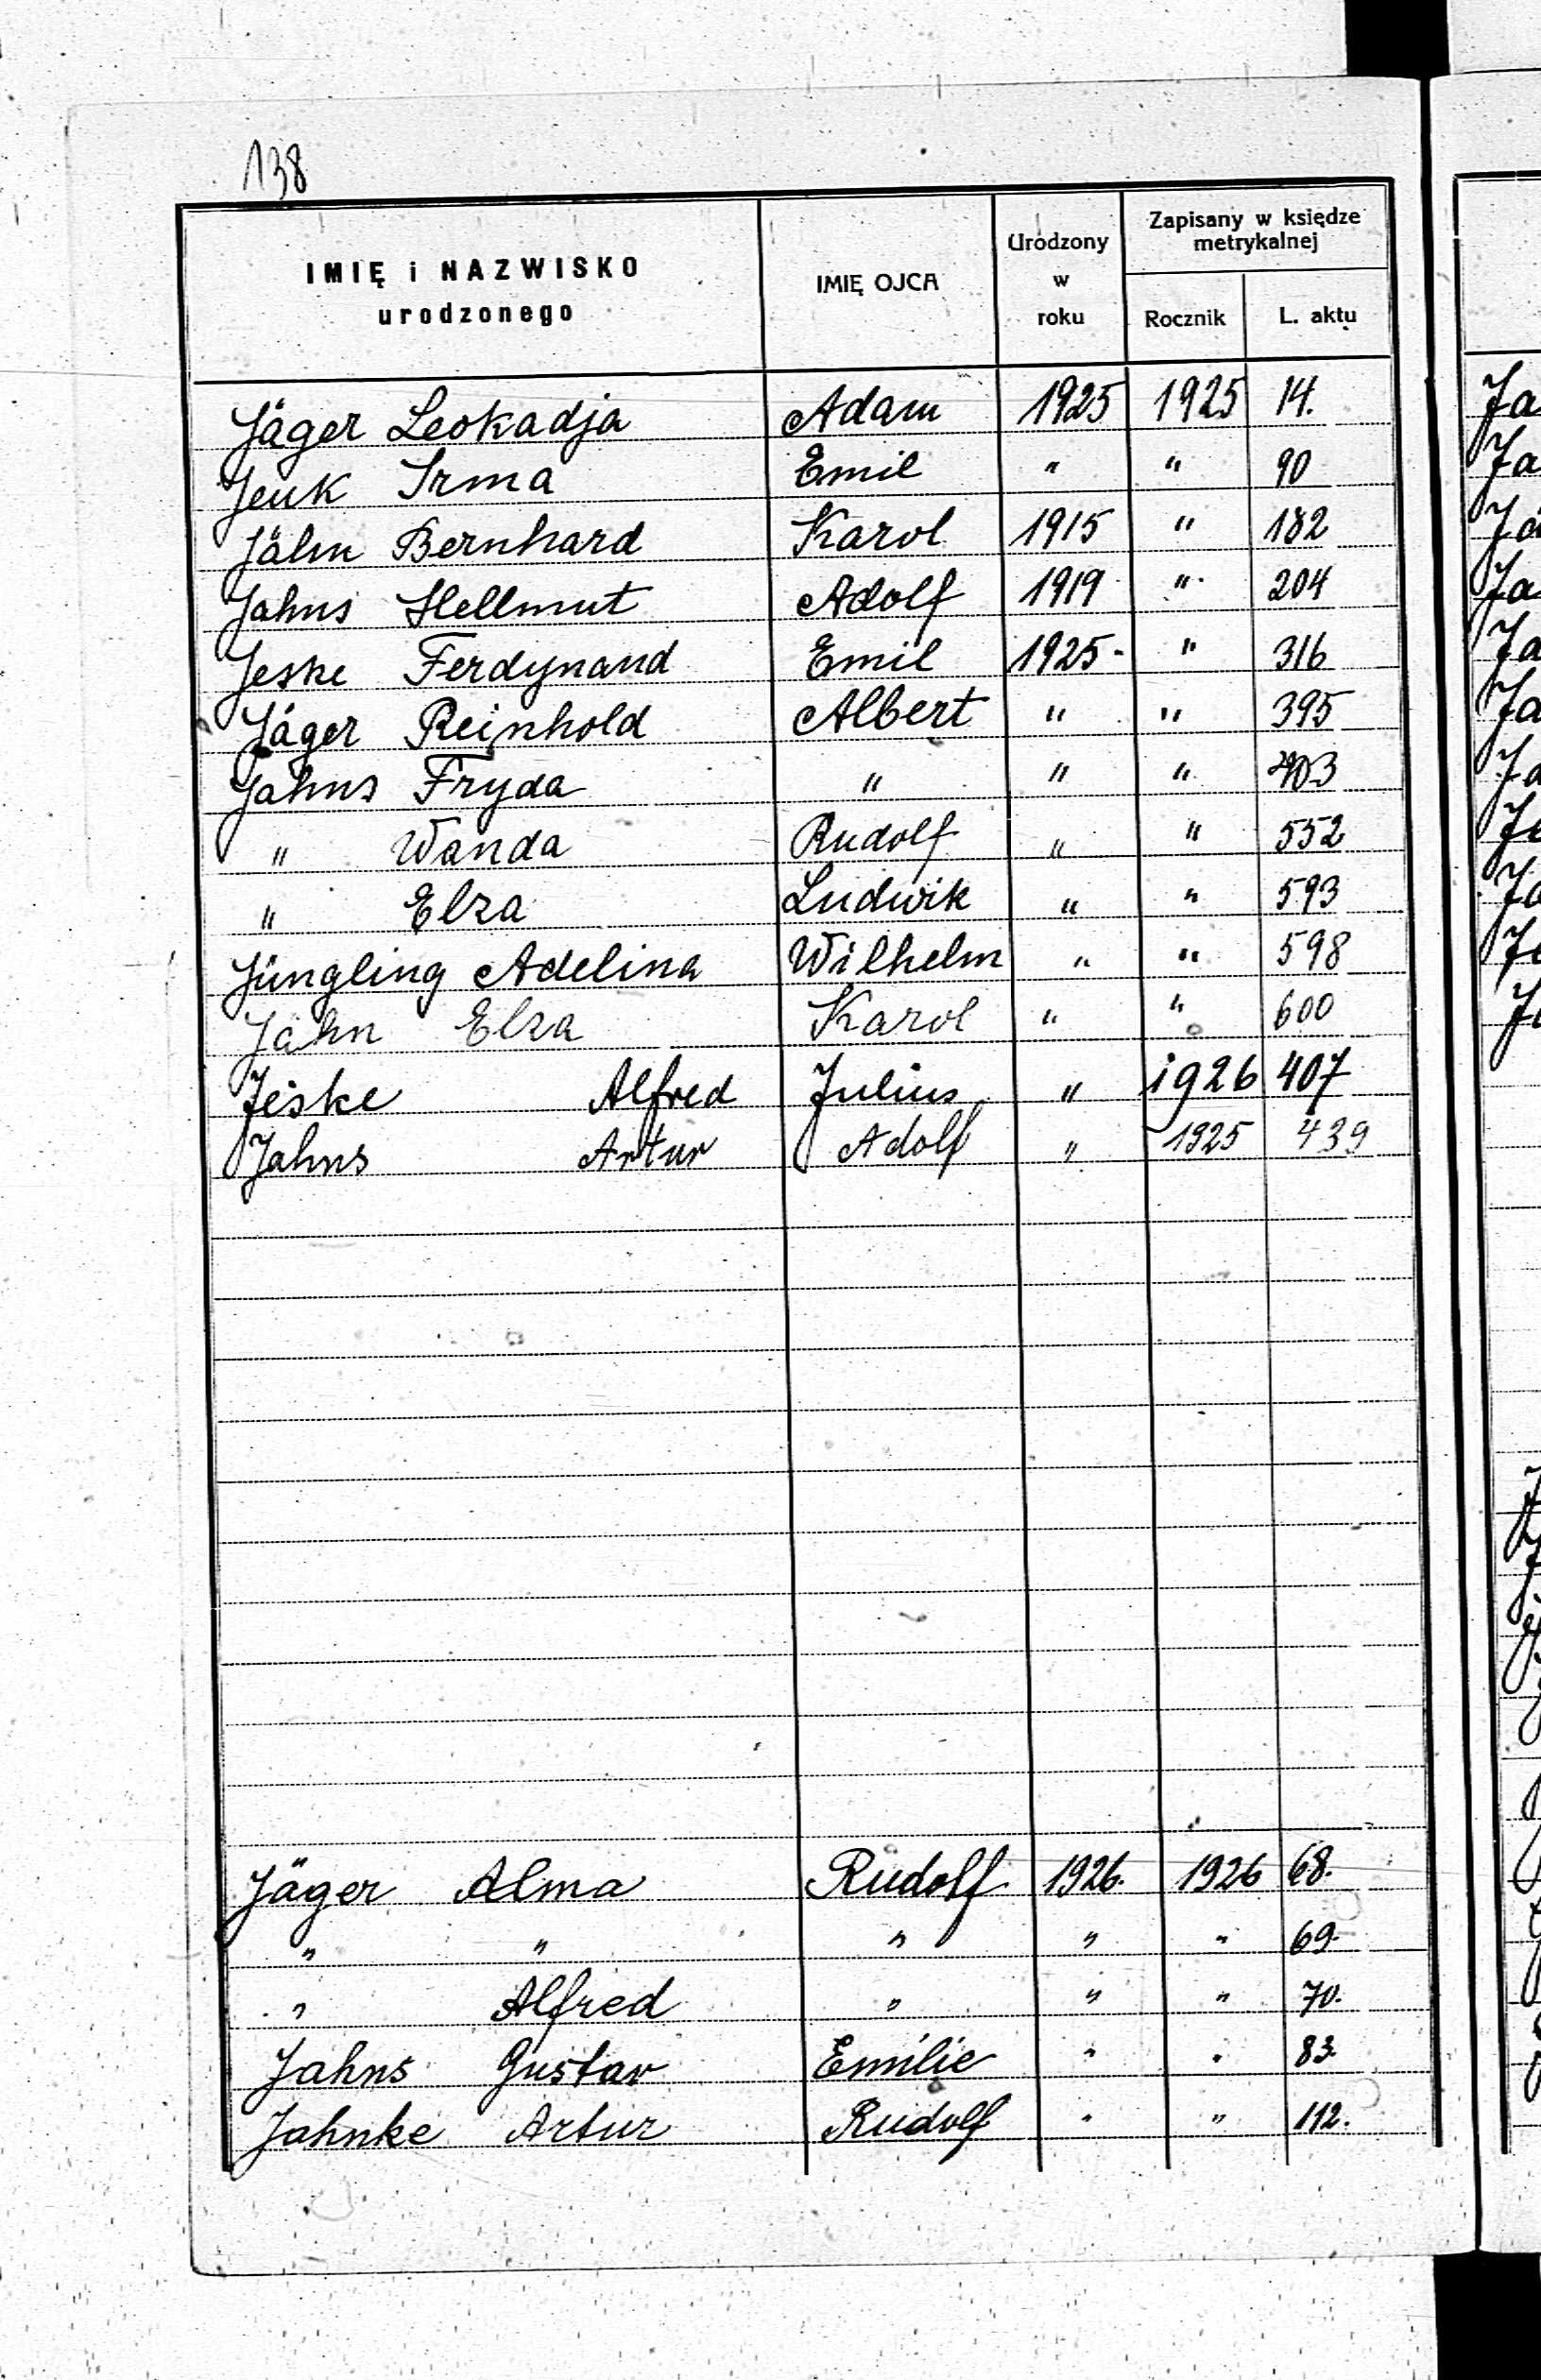 138
IMIĘ i NAZWISKO urodzonego | IMIĘ OJCA | Urodzony w roku | Zapisany w księdze metrykalnej
Rocznik | L. aktu
Jäger Leokadja | Adam | 1925 | 1925 | 14.
Jeuk Irma | Emil | " | " | 90
Jähn Bernhard | Karol | 1915 | " | 182
Jahns Hellmut | Adolf | 1919 | " | 204
Jeske Ferdynand | Emil | 1925- | " | 316
Jäger Reinhold | Albert | " | " | 395
Jahns Fryda | " | " | " | 403
" Wanda | Rudolf | " | " | 552
" Elza | Ludwik | " | " | 593
Jüngling Adelina | Wilhelm | " | " | 598
Jähn Elza | Karol | " | " | 600
Jeske Alfred | Julius | " | 1926 | 407
Jahns Artur | Adolf | " | 1925 | 439
Jäger Alma | Rudolf | 1926. | 1926 | 68.
" " | " | " | " | 69.
" Alfred | " | " | " | 70.
Jahns Gustav | Emilie | " | " | 83.
Jahnke Artur | Rudolf | " | " | 112.